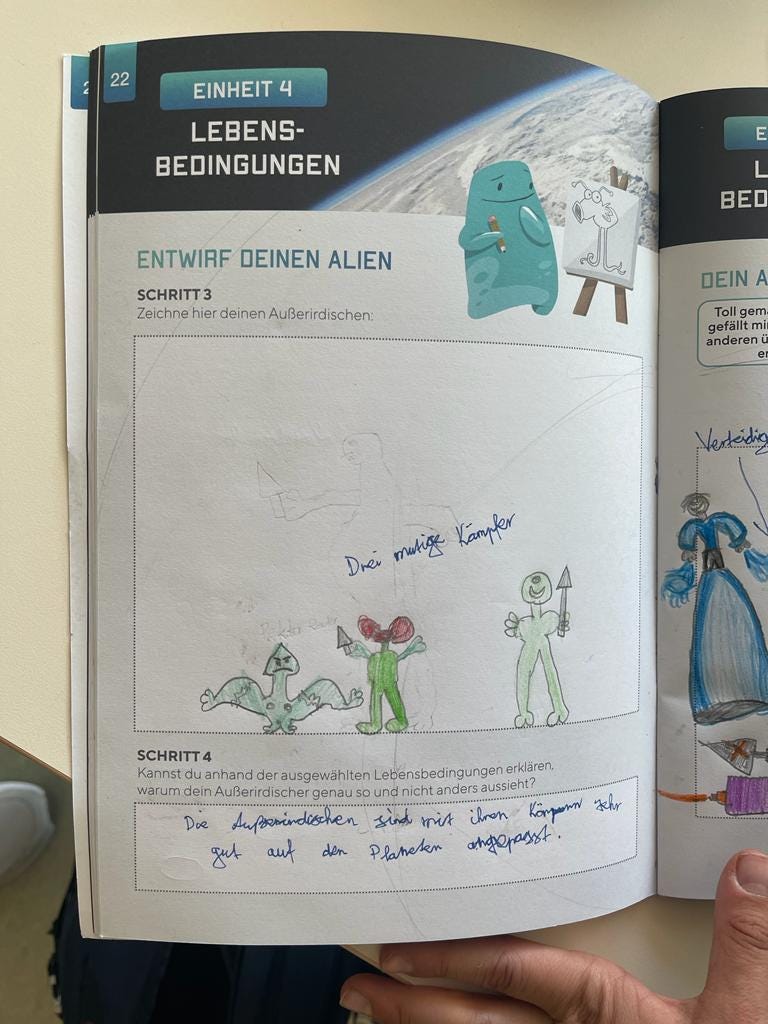 22
EINHEIT 4
LEBENS-
BEDINGUNGEN
ENTWIRF DEINEN ALIEN
SCHRITT 3
Zeichne hier deinen Außerirdischen:
Drei mutige Kämpfer
SCHRITT 4
Kannst du anhand der ausgewählten Lebensbedingungen erklären,
warum dein Außerirdischer genau so und nicht anders aussieht?
Die Außerirdischen sind mit ihren sehr
gut auf den Planeten angepasst.
2
E
L
BED
DEIN A
Toll gem
gefällt mi
anderen ü
er
Verteidig